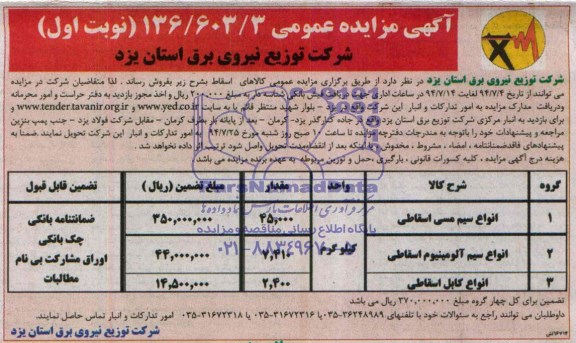 آگهی مزایده عمومی ۱۳۶/۶۰۳/۳ (نوبت اول)
شرکت توزیع نیروی برق استان یزد
شرکت توزیع نیروی برق استان یزد در نظر دارد از طریق برگزاری مزایده عمومی کالاهای اسقاط بشرح زیر بفروش رساند . لذا متقاضیان شرکت در مزایده
می توانند از تاریخ ۹۴/۷/۴ لغایت ۹۴/۷/۱۴ در ساعات اداری با ارائه فیش بانکی به مبلغ ریال و اخذ مجوز بازدید به دفتر حراست و امور محرمانه
ودریافت مدارک مزایده به امور تدارکات و انبار این شرکت واقع در یزد - بلوار شهید منتظر قائم یا به سایت www.yed.co.ir و www.tender.tavanir.org.ir
برای بازدید به انبار مرکزی شرکت توزیع برق استان یزد واقع در جاده کنارگذر یزد-کرمان - بعد از پایانه بار بطرف کرمان - مقابل شرکت فولاد یزد - جنب پمپ بنزین
مراجعه و پیشنهادات خود را باتوجه به مندرجات دفترچه مزایده تا ساعت ۱۰ صبح روز شنبه مورخ ۹۴/۷/۲۵ به امور تدارکات و انبار این شرکت تحویل نمایند .ضمناً به
پیشنهادهای فاقدضمانتنامه ، امضاء ، مشروط ، مخدوش و اینکه بعد از انقضاءمدت تحویل واصل شود ترتیب اثر داده نخواهد شد .
هزینه درج آگهی مزایده ، کلیه کسورات قانونی ، بارگیری ،حمل و توزین مربوطه به عهده برنده مزایده می باشد
گروه شرح کالا واحد مقدار مبلغ تضمین (ریال ) تضمین قابل قبول
۱ انواع سیم مسی اسقاطی کیلو گرم ۴۵,۰۰۰ ۳۵۰,۰۰۰,۰۰۰ ضمانتنامه بانکی
چک بانکی
۲ انواع سیم آلومینیوم اسقاطی ۷,۴۱۰ ۴۴,۰۰۰,۰۰۰ اوراق مشارکت بی نام
مطالبات
۳ انواع کابل اسقاطی ۲,۴۰۰ ۱۴,۵۰۰,۰۰۰
تضمین برای کل چهار گروه مبلغ ۳۷۰,۰۰۰,۰۰۰ ریال می باشد
داوطلبان می توانند راجع به سئوالات خود با تلفنهای ۳۶۲۴۸۹۸۹-۰۳۵ یا ۳۱۶۷۲۳۱۶-۰۳۵ یا ۳۱۶۷۲۳۱۸-۰۳۵ امور تدارکات و انبار تماس حاصل نمایند.
شرکت توزیع نیروی برق استان یزد
ParsNamadData
پایگاه اطلاع رسانی مناقصه و مزایده
۰۲۱-۸۸۳۴۹۶۷۰